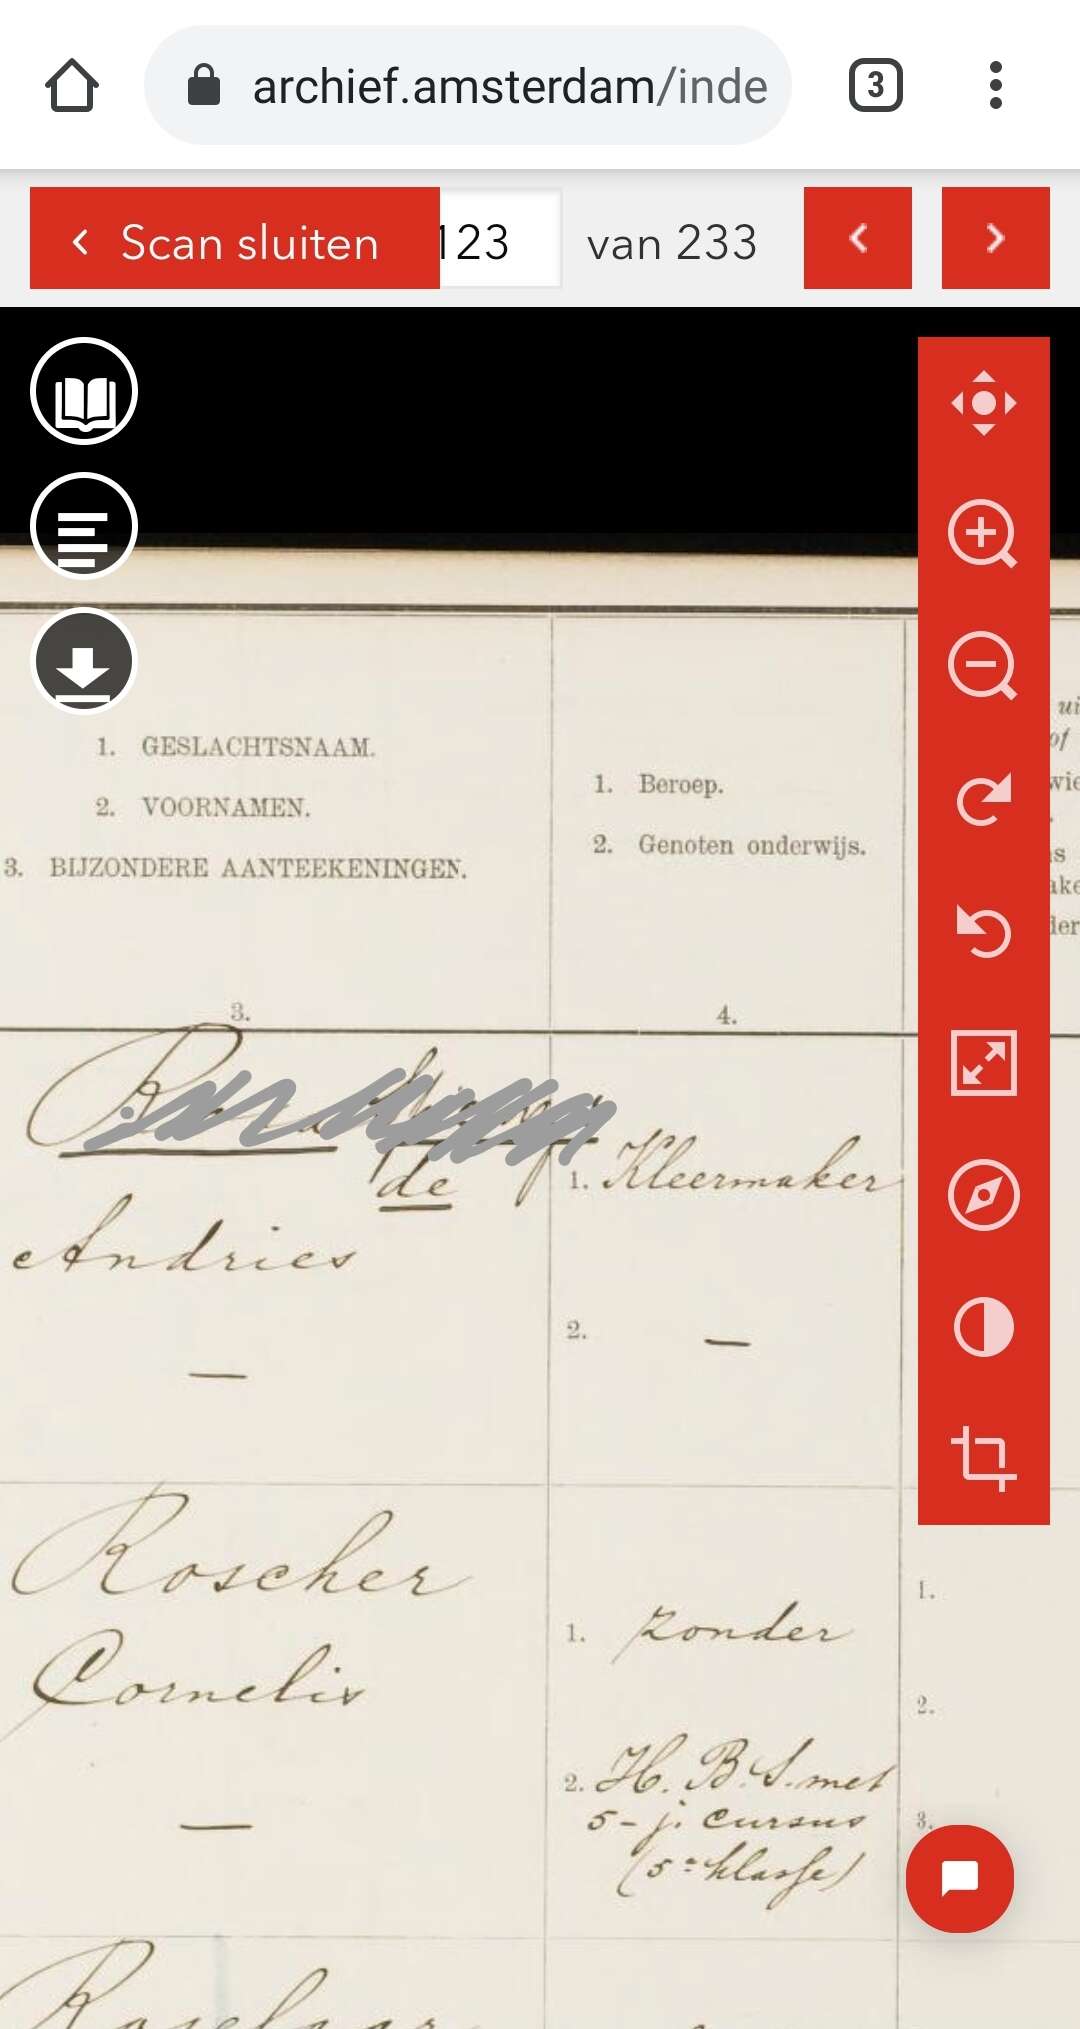 archief.amsterdam/inde
3
Scan sluiten
123
van 233
1. GESLACHTSNAAM.
2. VOORNAMEN.
3. BIJZONDERE AANTEEKENINGEN.
1. Beroep.
2. Genoten onderwijs.
3.
4.
de
Andries
—
1. Kleermaker
2. —
Roscher
Cornelis
—
1. zonder
2. H. B. S. met
5-j. cursus
(5e klasse)
1.
2.
3.